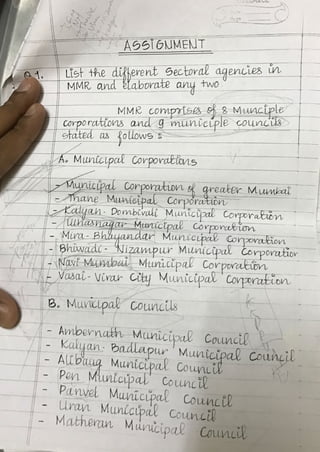 ASSIGNMENT
Q.1. List the different sectoral agencies in
MMR and Elaborate any two
MMR comprises of 8 Munciple
corporations and 9 municiple councils
stated as follows :
A. Municipal Corporations
- Municipal Corporation of greater Mumbai
- Thane Municipal Corporation
- Kalyan-Dombivali Municipal Corporation
- Ulhasnagar Municipal Corporation
- Mira-Bhayandar Municipal Corporation
- Bhiwadi-Nizampur Municipal Corporation
- Navi Mumbai Municipal Corporation
- Vasai-Virar City Municipal Corporation
B. Municipal Councils
- Ambernath Municipal Council
- Kalyan-Badlapur Municipal Council
- Alibaug Municipal Council
- Pen Municipal Council
- Panvel Municipal Council
- Uran Municipal Council
- Matheran Municipal Council